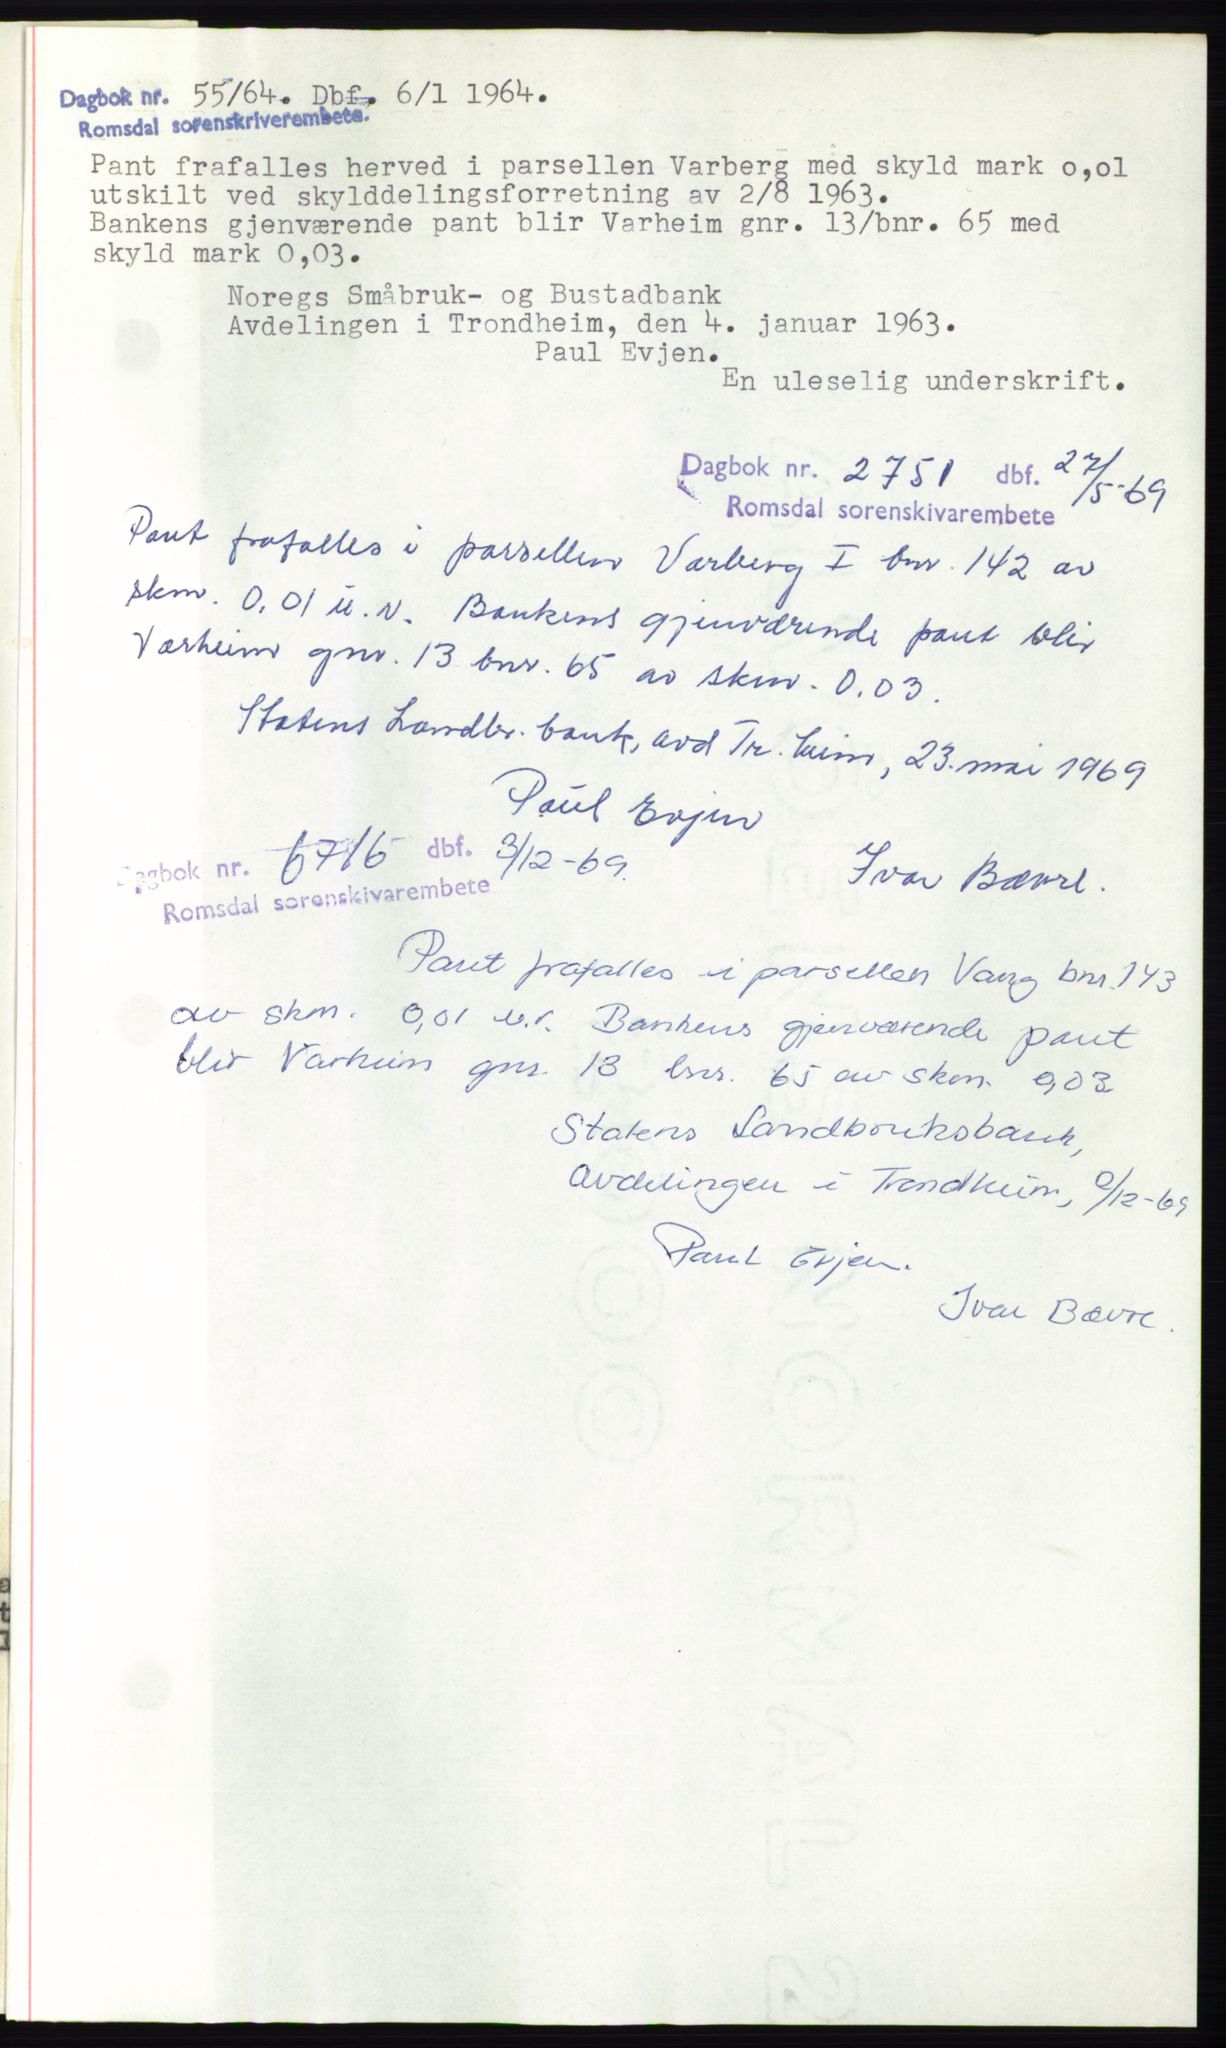 Dagbok nr. 55/64. Dbf. 6/1 1964.
Romsdal sorenskriverembete.
Pant frafalles herved i parsellen Varberg med skyld mark o,ol
utskilt ved skylddelingsforretning av 2/8 1963.
Bankens gjenværende pant blir Varheim gnr. 13/bnr. 65 med
skyld mark 0,03.
Noregs Småbruk- og Bustadbank
Avdelingen i Trondheim, den 4. januar 1963.
Paul Evjen.
En uleselig underskrift.
Dagbok nr. 2751 dbf. 27/5-69
Romsdal sorenskivarembete
Pant frafalles i parsellen Varberg I bnr. 142 av
skm. 0,01 u.r. Bankens gjenværende pant blir
Varheim gnr. 13 bnr. 65 av skm. 0.03.
Statens Landbr. bank, avd Tr.heim, 23. mai 1969
Paul Evjen
Ivar Bævre.
Dagbok nr. 6716 dbf. 3/12-69.
Romsdal sorenskivarembete
Pant frafalles i parsellen Vang bnr. 143
av skm. 0,01 u.r. Bankens gjenværende pant
blir Varheim gnr. 13 bnr. 65 av skm. 0,03
Statens Landbruksbank,
Avdelingen i Trondheim, /12-69
Paul Evjen.
Ivar Bævre.